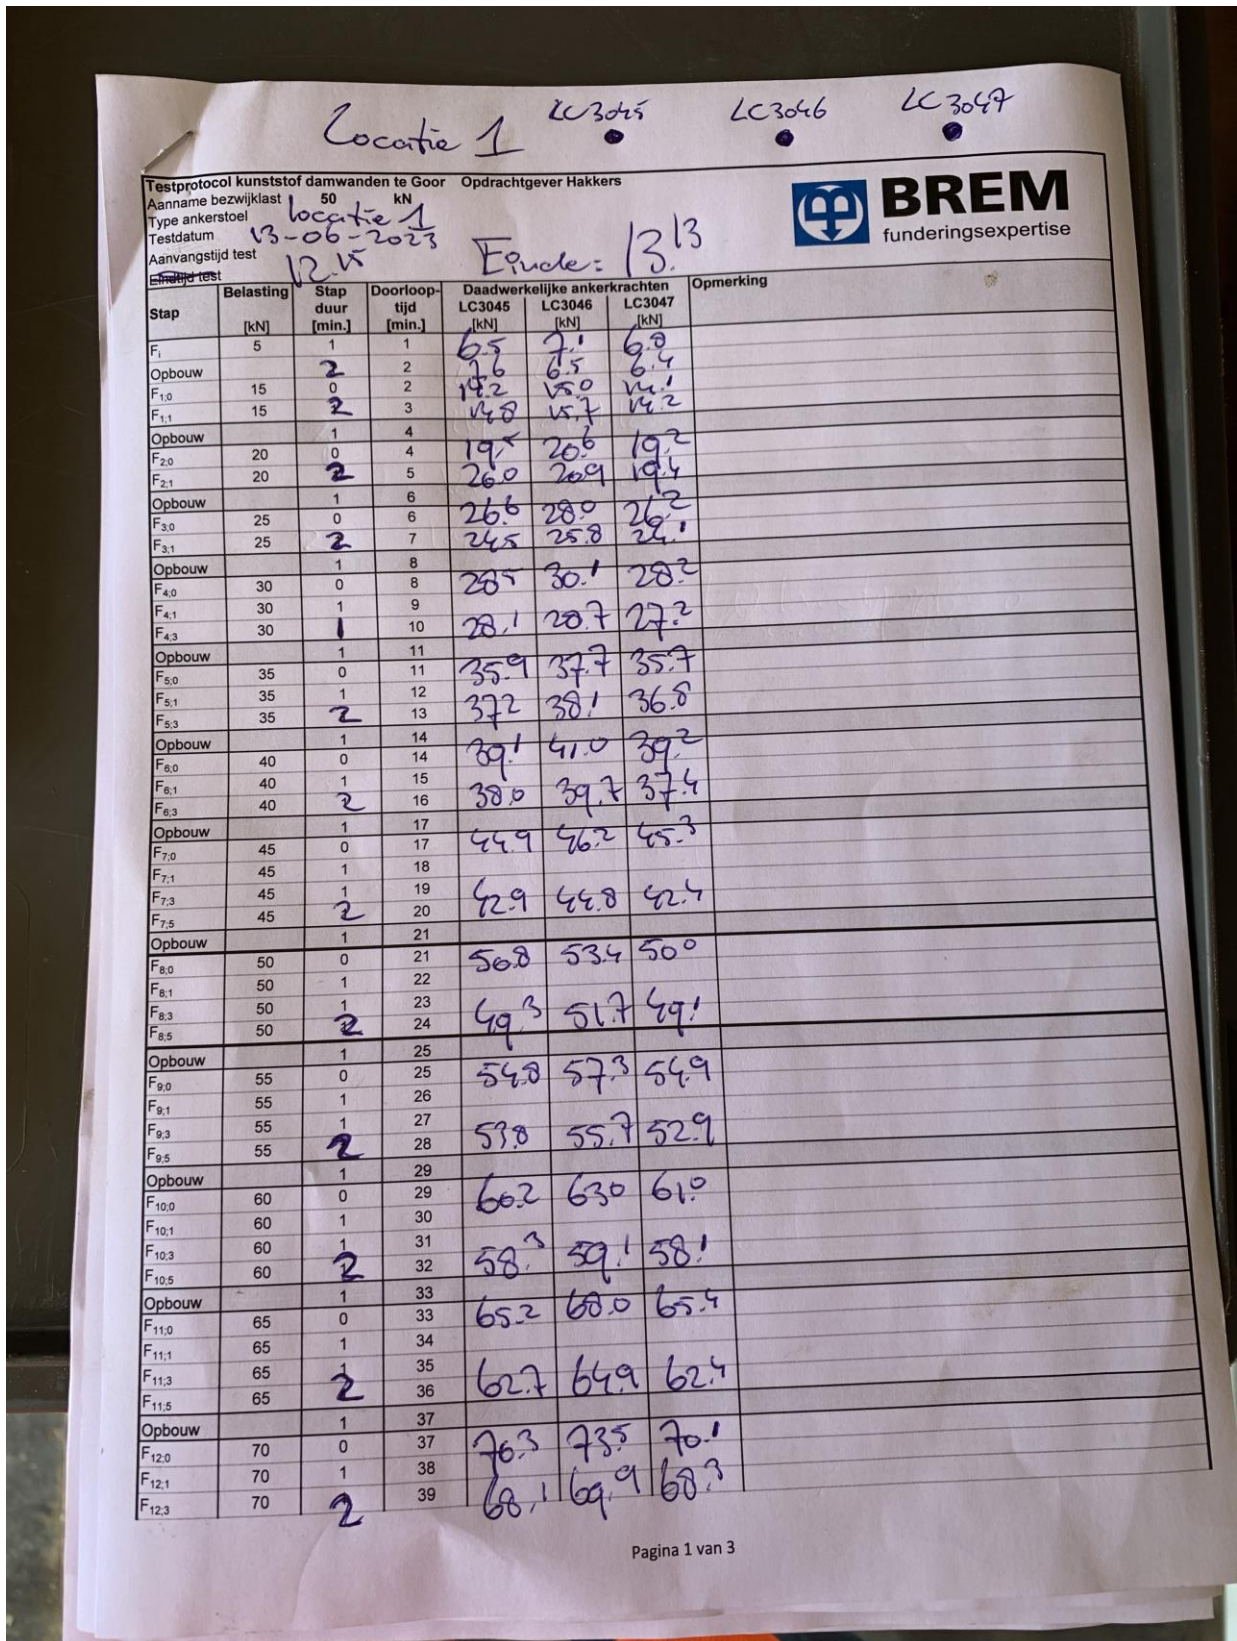 Locatie 1 LC3045 LC3046 LC3047
Testprotocol kunststof damwanden te Goor Opdrachtgever Hakkers
Aanname bezwijklast 50 kN
Type ankerstoel locatie 1
Testdatum 13-06-2023
Aanvangstijd test 12.15 Einde: 13.13
Eindtijd test
BREM
funderingsexpertise
Stap Belasting [kN] Stap duur [min.] Doorloop-tijd [min.] Daadwerkelijke ankerkrachten LC3045 [kN] LC3046 [kN] LC3047 [kN] Opmerking
Fi 5 1 1 6.5 7.1 6.8
Opbouw 2 2 7.6 6.5 6.4
F1;0 15 0 2 14.2 15.0 14.1
F1;1 15 2 3 14.8 15.7 14.2
Opbouw 1 4
F2;0 20 0 4 19.5 20.6 19.2
F2;1 20 2 5 20.0 20.9 19.4
Opbouw 1 6
F3;0 25 0 6 26.6 28.0 26.2
F3;1 25 2 7 24.5 25.8 24.1
Opbouw 1 8
F4;0 30 0 8 28.5 30.1 28.2
F4;1 30 1 9
F4;3 30 1 10 28.1 28.7 27.2
Opbouw 1 11
F5;0 35 0 11 35.9 37.7 35.7
F5;1 35 1 12
F5;3 35 2 13 37.2 38.1 36.8
Opbouw 1 14
F6;0 40 0 14 39.1 41.0 39.2
F6;1 40 1 15
F6;3 40 2 16 38.0 39.7 37.4
Opbouw 1 17
F7;0 45 0 17 44.9 46.2 45.3
F7;1 45 1 18
F7;3 45 1 19
F7;5 45 2 20 42.9 44.8 42.4
Opbouw 1 21
F8;0 50 0 21 50.8 53.4 50.0
F8;1 50 1 22
F8;3 50 1 23
F8;5 50 2 24 49.3 51.7 49.1
Opbouw 1 25
F9;0 55 0 25 54.8 57.3 54.9
F9;1 55 1 26
F9;3 55 1 27
F9;5 55 2 28 53.8 55.7 52.9
Opbouw 1 29
F10;0 60 0 29 60.2 63.0 61.0
F10;1 60 1 30
F10;3 60 1 31
F10;5 60 2 32 58.3 59.1 58.1
Opbouw 1 33
F11;0 65 0 33 65.2 68.0 65.4
F11;1 65 1 34
F11;3 65 1 35
F11;5 65 2 36 62.7 64.9 62.4
Opbouw 1 37
F12;0 70 0 37 70.3 73.5 70.1
F12;1 70 1 38
F12;3 70 2 39 68.1 69.9 68.3
Pagina 1 van 3